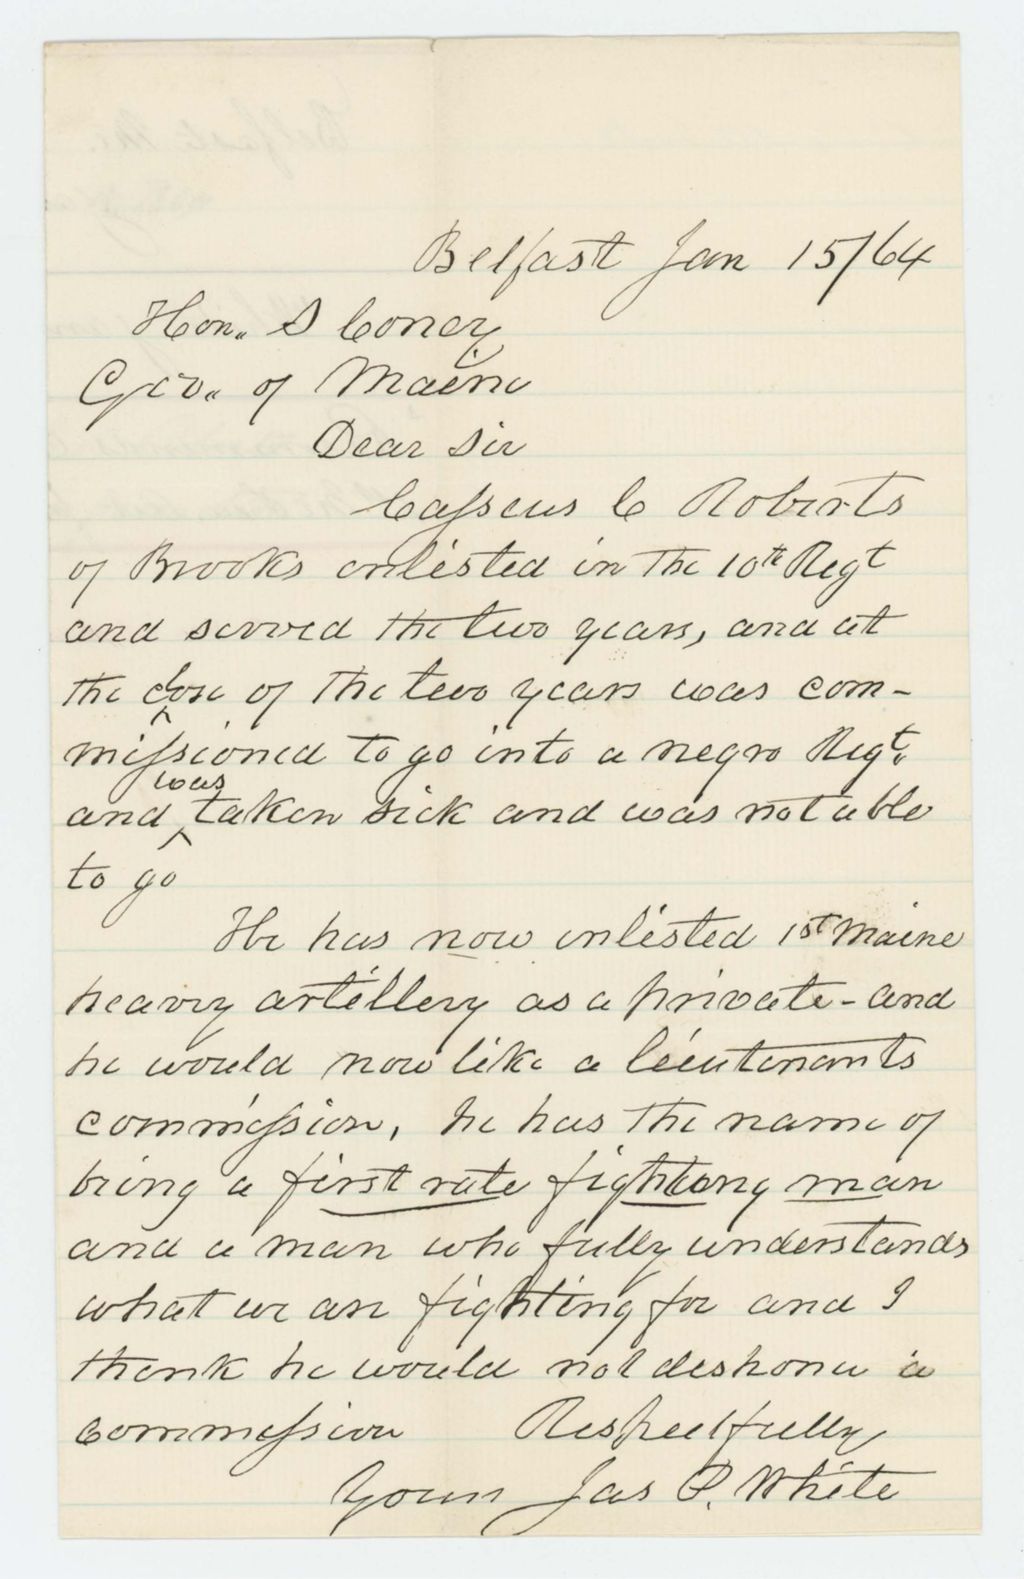 Belfast Jan 15/64
Hon. S Coney
Gov. of Maine
Dear Sir
Casseus C Roberts
of Brooks enlisted in the 10th Regt
and served the two years, and at
the close of the two years was com-
missioned to go into a negro Regt.
and was taken sick and was not able
to go
He has now enlisted 1st Maine
heavy artillery as a private - and
he would now like a lieutenants
commission, he has the name of
being a first rate fighting man
and a man who fully understands
what we are fighting for and I
think he would not dishonor a
commission Respectfully
Yours Jas P. White